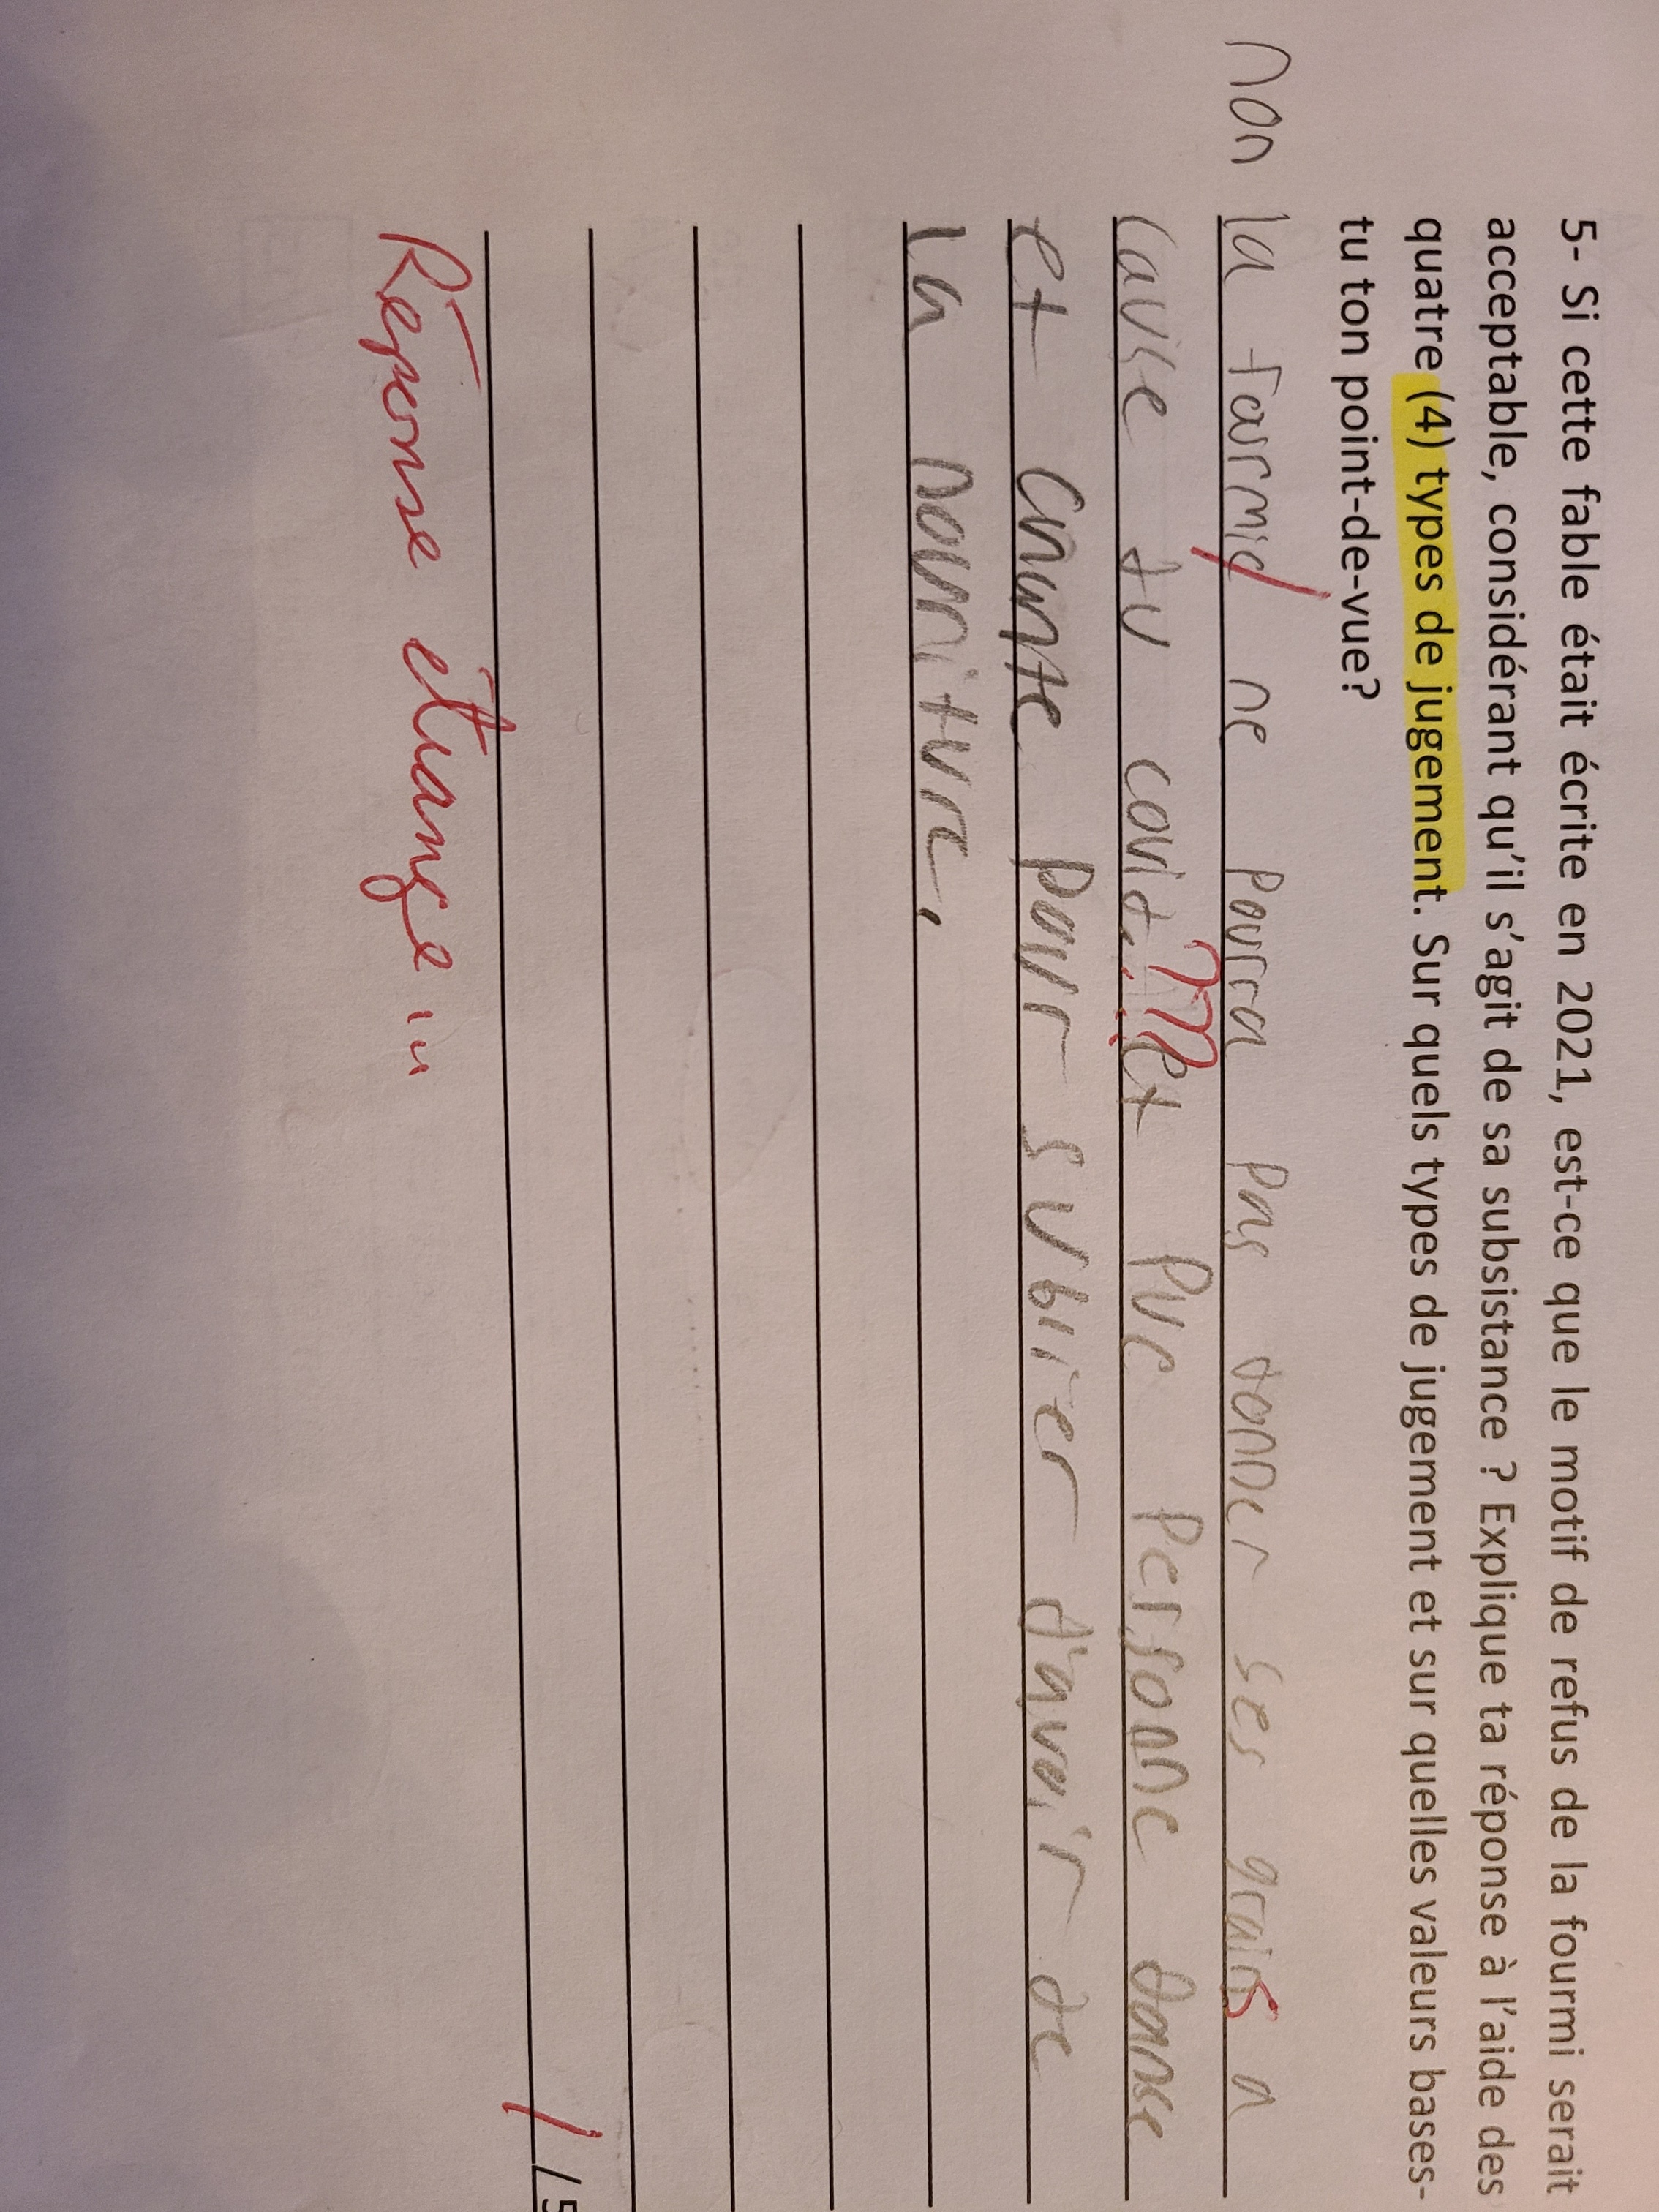 5- Si cette fable était écrite en 2021, est-ce que le motif de refus de la fourmi serait
acceptable, considérant qu'il s'agit de sa subsistance ? Explique ta réponse à l'aide des
quatre (4) types de jugement. Sur quels types de jugement et sur quelles valeurs bases-
tu ton point-de-vue?
non la fourmie ne pourra pas donner ses grains a
cause du covid...??? et puc persone danse
et chante pour subiter d'avoir de
la nouriture.
1 /5
Réponse étrange...